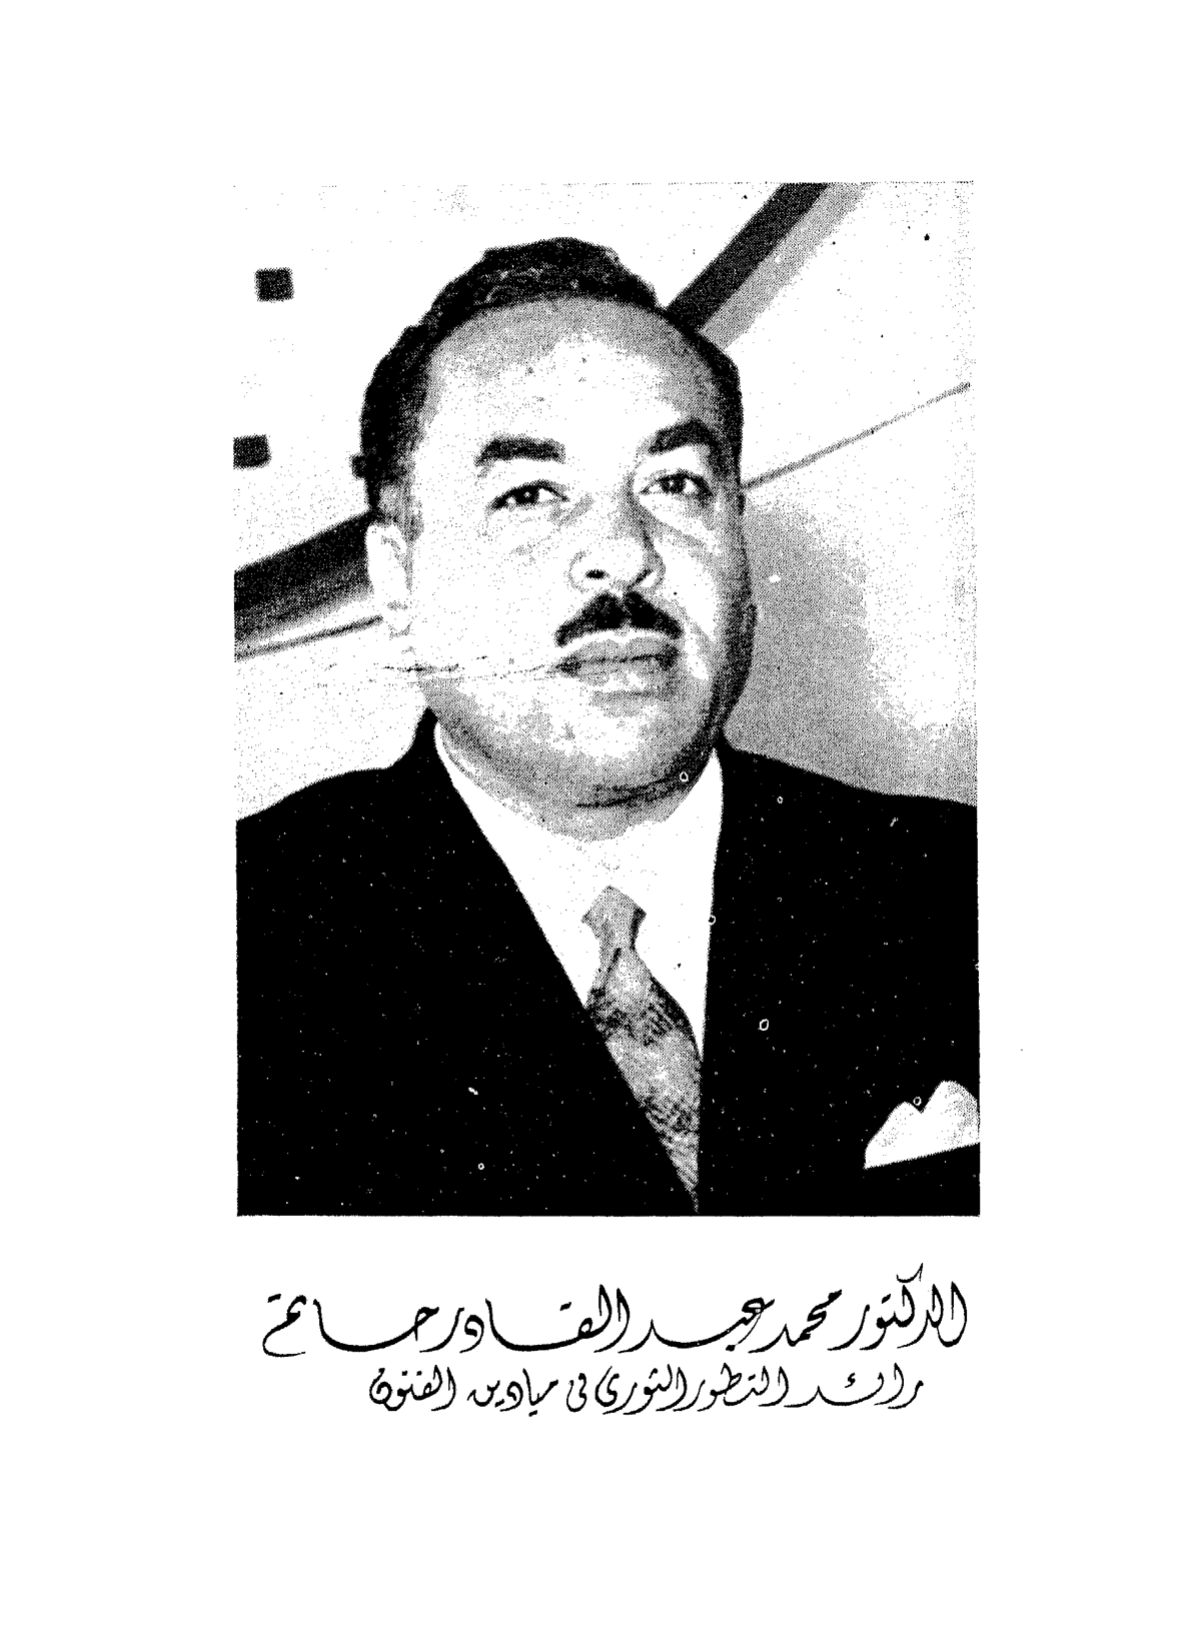 الدكتور محمد عبد القادر حاتم
رائد التطور الثورى فى ميادين الفنون